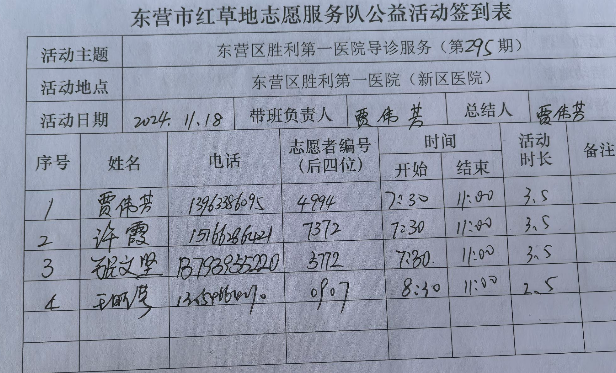 东营市红草地志愿服务队公益活动签到表
活动主题 东营区胜利第一医院导诊服务（第295期）
活动地点 东营区胜利第一医院（新区医院）
活动日期 2024.11.18 带班负责人 贾伟芳 总结人 贾伟芳
序号 姓名 电话 志愿者编号（后四位） 时间 开始 结束 活动时长 备注
1 贾伟芳 13963386095 4994 7:30 11:00 3.5
2 许霞 15166286421 7372 7:30 11:00 3.5
3 文坚 13793835220 3772 7:30 11:00 3.5
4 0907 8:30 11:00 2.5